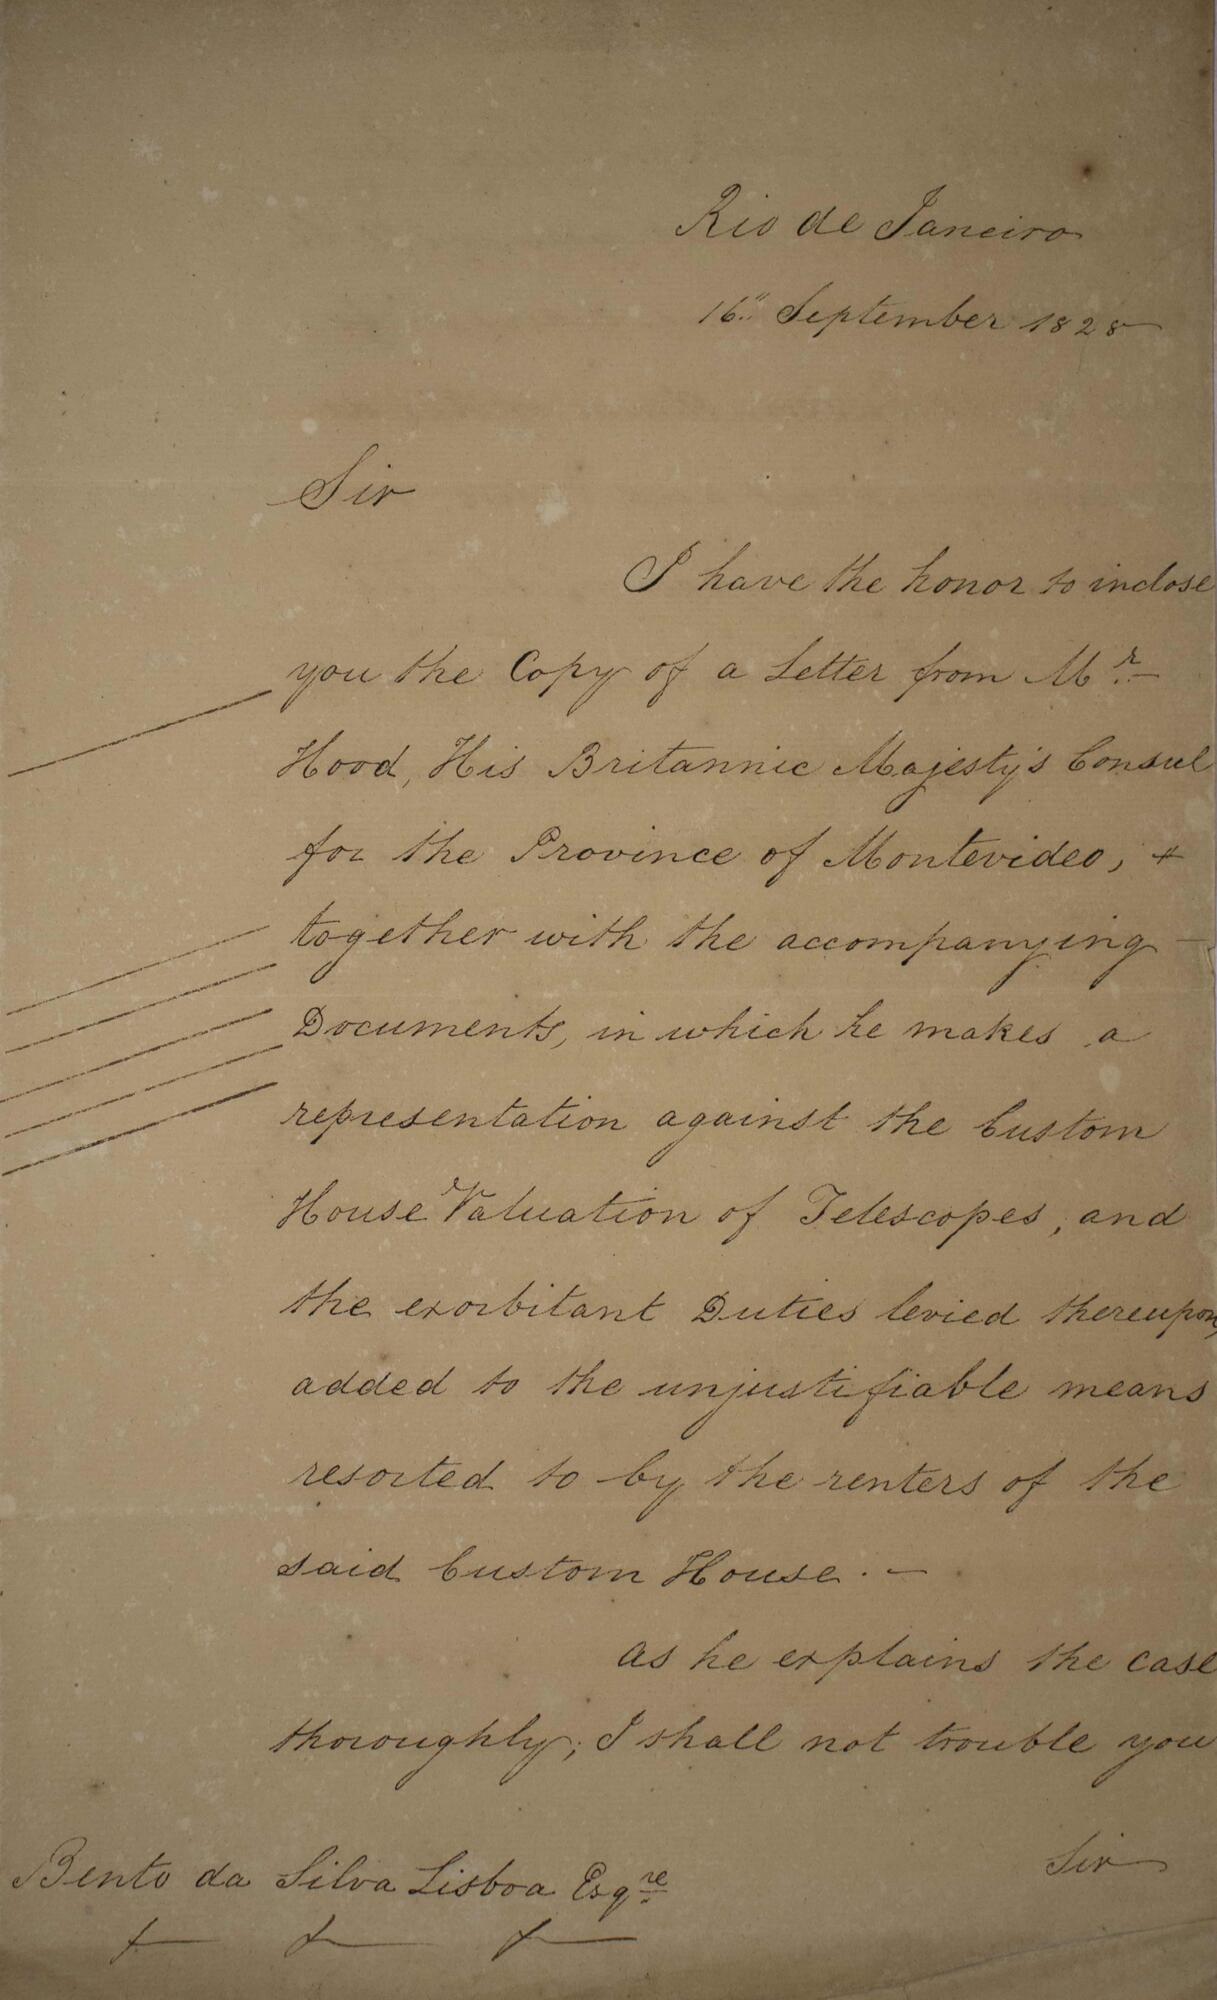 Rio de Janeiro
16" September 1828
Sir
I have the honor to inclose
you the Copy of a Letter from Mr.
Hood, His Britannic Majesty's Consul
for the Province of Montevideo, +
together with the accompanying
Documents, in which he makes a
representation against the Custom
House Valuation of Telescopes, and
the exorbitant Duties levied thereupon,
added to the unjustifiable means
resorted to by the renters of the
said Custom House. -
As he explains the case
thoroughly; I shall not trouble you
Sir
Bento da Silva Lisboa Esqre